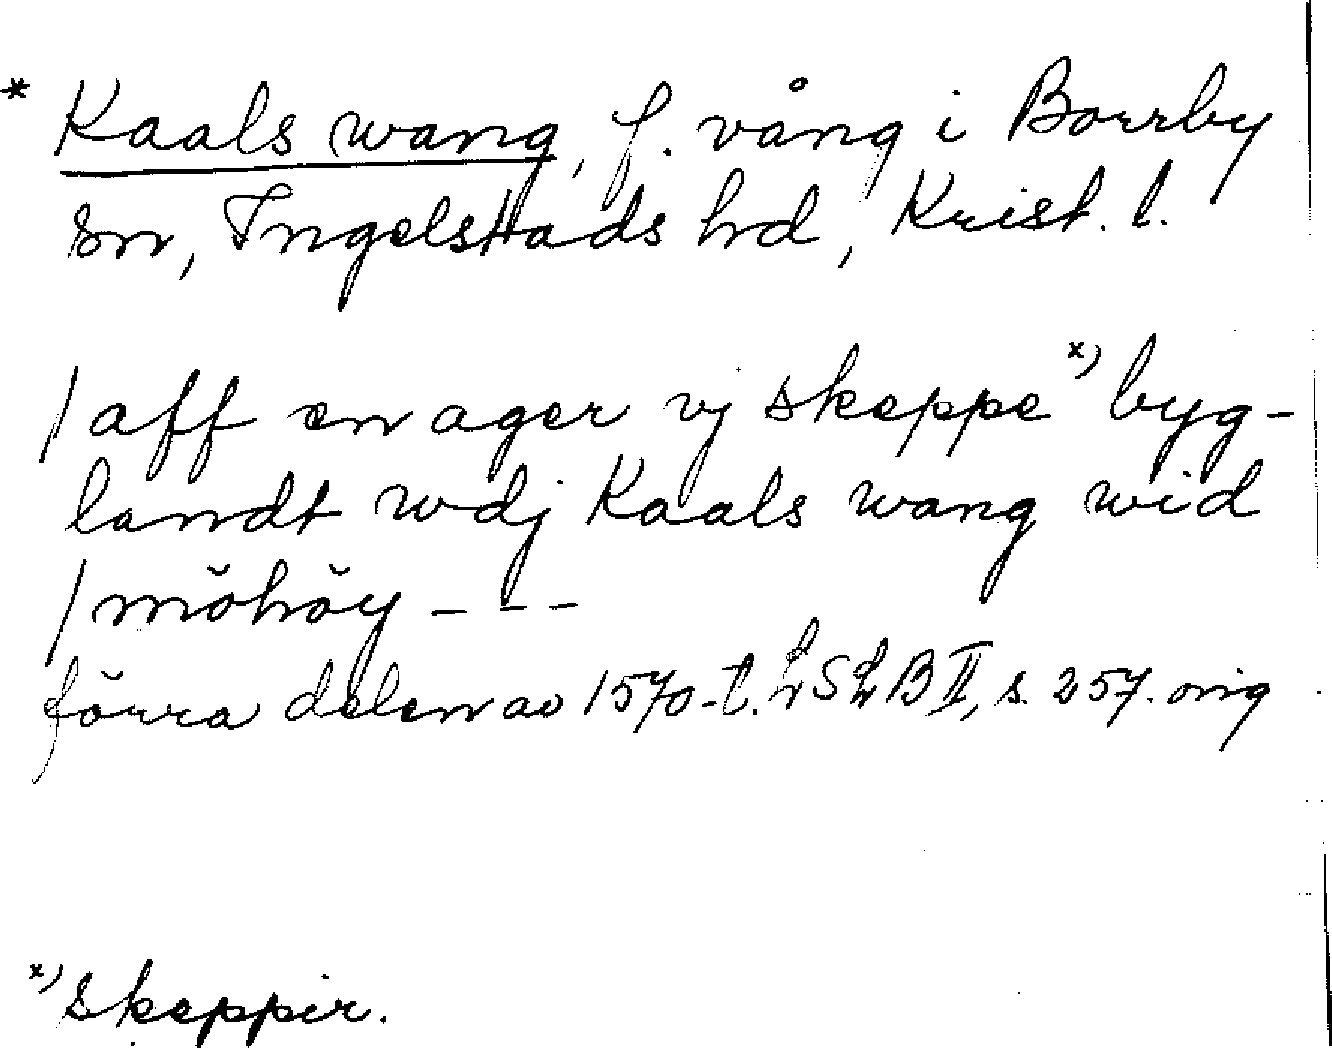 * Kaals wang, f. vång i Borrby
sn, Ingelstads hd, Krist. l.
/aff en ager vj skeppe x) byg-
landt wdj Kaals wang wid
/mŏhŏy - - -
förra delen av 1570-t. LSLB II, s. 257. orig
x) skeppir.